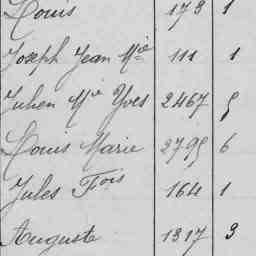 Louis 173 1
Joseph Jean Mie 111 1
Julien Mie Yves 2467 5
Louis Marie 2795 6
Jules Fois 164 1
Auguste 1317 3